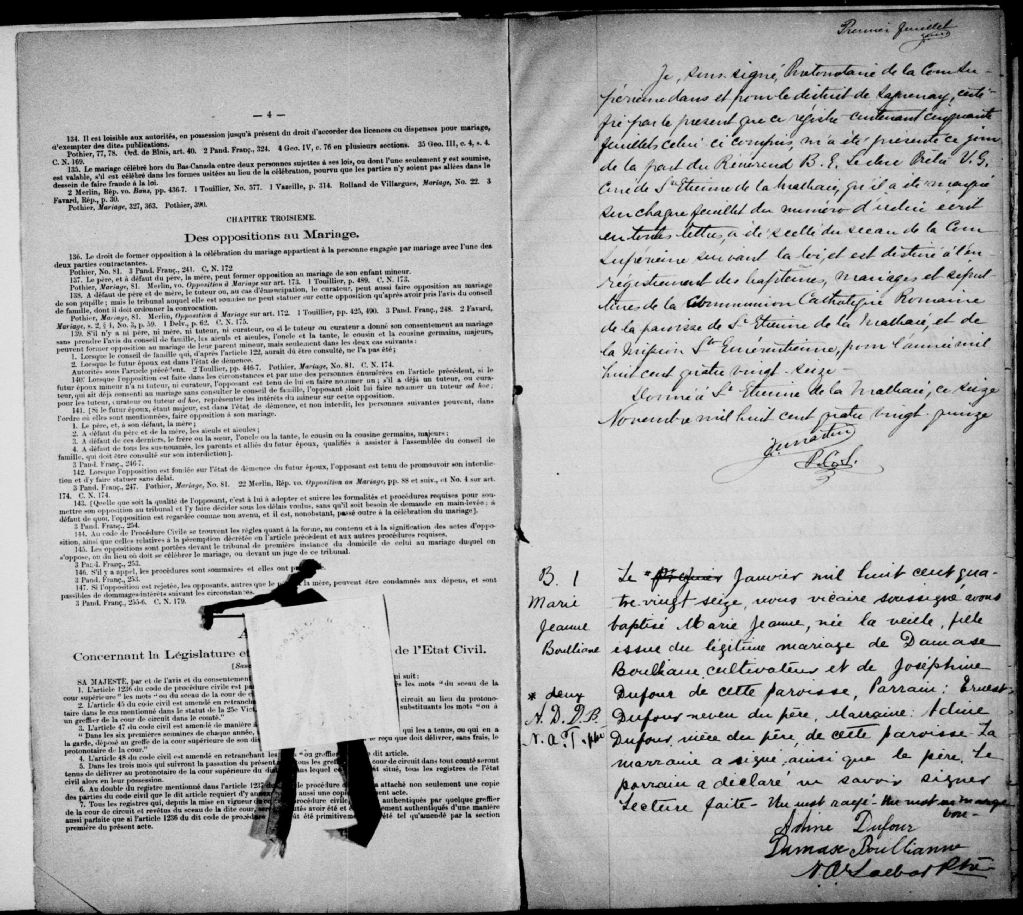 — 4 —
134. Il est loisible aux autorités, en possession jusqu'à présent du droit d'accorder des licences ou dispenses pour mariage,
d'exempter des dites publications.
Pothier, 77, 78. Ord. de Blois, art. 40. 2 Pand. Franç., 324. 4 Geo. IV, c. 76 en plusieurs sections. 35 Geo. III, c. 4, s. 4.
C. N. 169.
135. Le mariage célébré hors du Bas-Canada entre deux personnes sujettes à ses lois, ou dont l'une seulement y est soumise,
est valable, s'il est célébré dans les formes usitées au lieu de la célébration, pourvu que les parties n'y soient pas allées dans le
dessein de faire fraude à la loi.
2 Merlin, Rép. vo. Bans, pp. 436-7. 1 Toullier, No. 577. 1 Vazeille, p. 314. Rolland de Villargues, Mariage, No. 22. 3
Favard, Rép., p. 30.
Pothier, Mariage, 327, 363. Pothier, 390.
CHAPITRE TROISIEME.
Des oppositions au Mariage.
136. Le droit de former opposition à la célébration du mariage appartient à la personne engagée par mariage avec l'une des
deux parties contractantes.
Pothier, No. 81. 3 Pand. Franç., 241. C. N. 172
137. Le père, et à défaut du père, la mère, peut former opposition au mariage de son enfant mineur.
Pothier, Mariage, 81. Merlin, vo. Opposition à Mariage sur art. 173. 1 Toullier, p. 489. C. N. 173.
138. A défaut de père et de mère, le tuteur ou, au cas d'émancipation, le curateur, peut aussi faire opposition au mariage
de son pupille; mais le tribunal auquel elle est soumise ne peut statuer sur cette opposition qu'après avoir pris l'avis du conseil
de famille, dont il doit ordonner la convocation.
Pothier, Mariage, 81. Merlin, Opposition à Mariage sur art. 172. 1 Toullier, pp. 425, 490. 3 Pand. Franç., 248. 2 Favard,
Mariage, s. 2, § 1, No. 3, p. 59. 1 Delv., p. 62. C. N. 175.
139. S'il n'y a ni père, ni mère, ni tuteur, ni curateur, ou si le tuteur ou curateur a donné son consentement au mariage
sans prendre l'avis du conseil de famille, les aïeuls et aïeules, l'oncle et la tante, le cousin et la cousine germains, majeurs,
peuvent former opposition au mariage de leur parent mineur, mais seulement dans les deux cas suivants:
1. Lorsque le conseil de famille qui, d'après l'article 122, aurait dû être consulté, ne l'a pas été;
2. Lorsque le futur époux est dans l'état de démence.
Autorités sous l'article précédent. 2 Toullier, pp. 446-7. Pothier, Mariage, No. 81. C. N. 174.
140. Lorsque l'opposition est faite dans les circonstances et par une des personnes énumérées en l'article précédent, si le
futur époux mineur n'a ni tuteur, ni curateur, l'opposant est tenu de lui en faire nommer un; s'il a déjà un tuteur, ou cura-
teur, qui ait déjà consenti au mariage sans consulter le conseil de famille, l'opposant doit lui faire nommer un tuteur ad hoc,
pour les tuteur, curateur ou tuteur ad hoc, représenter les intérêts du mineur sur cette opposition.
141. [Si le futur époux, étant majeur, est dans l'état de démence, et non interdit, les personnes suivantes peuvent, dans
l'ordre où elles sont mentionnées, faire opposition à son mariage.
1. Le père, et, à son défaut, la mère;
2. A défaut du père et de la mère, les aïeuls et aïeules;
3. A défaut de ces derniers, le frère ou la sœur, l'oncle ou la tante, le cousin ou la cousine germains, majeurs;
4. A défaut de tous les susnommés, les parents et alliés du futur époux, qualifiés à assister à l'assemblée du conseil de
famille, qui doit être consulté sur son interdiction].
3 Pand. Franç., 246-7.
142. Lorsque l'opposition est fondée sur l'état de démence du futur époux, l'opposant est tenu de promouvoir son interdic-
tion et d'y faire statuer sans délai.
3 Pand. Franç., 247. Pothier, Mariage, No. 81. 22 Merlin, Rép. vo. Opposition au Mariage, pp. 88 et suiv., et No. 4 sur art.
174. C. N. 174.
143. [Quelle que soit la qualité de l'opposant, c'est à lui à adopter et suivre les formalités et procédures requises pour sou-
mettre son opposition au tribunal et l'y faire décider sous les délais voulus, sans qu'il soit besoin de demande en main-levée; à
défaut de quoi, l'opposition est regardée comme non avenue, et il est, nonobstant, passé outre à la célébration du mariage].
3 Pand. Franç., 254.
144. Au code de Procédure Civile se trouvent les règles quant à la forme, au contenu et à la signification des actes d'oppo-
sition, ainsi que celles relatives à la péremption décrétée en l'article précédent et aux autres procédures requises.
145. Les oppositions sont portées devant le tribunal de première instance du domicile de celui au mariage duquel on
s'oppose, ou du lieu où doit se célébrer le mariage, ou devant un juge de ce tribunal.
3 Pand. Franç., 253.
146. S'il y a appel, les procédures sont sommaires et elles ont
3 Pand. Franç., 253.
147. Si l'opposition est rejetée, les opposants, autres que le la mère, peuvent être condamnés aux dépens, et sont
passibles de dommages-intérêts suivant les circonstances.
3 Pand. Franç., 255-6. C. N. 179.
A
Concernant la Législature et de l'Etat Civil.
SA MAJESTÉ, par et de l'avis et du consentement suit:
1. L'article 1236 du code de procédure civile est par les mots "du sceau de la
cour supérieure" les mots "ou du sceau de la cour de c
2. L'article 45 du code civil est amendé en retranchant circuit au lieu du protono-
taire dans le cas mentionné dans le statut de la 25e Vict substituants les mots "ou à
un greffier de la cour de circuit dans le comté."
3. L'article 47 du code civil est amendé de manière à
"Dans les six premières semaines de chaque année, qui les a tenus, ou qui en a
la garde, déposé au greffe de la cour supérieure de son dis reçu que doit délivrer, sans frais, le
protonotaire de la cour."
4. L'article 48 du code civil est amendé en retranchant les "ou greffier dit article.
5. Dans les trois mois qui suivront la passation du présent tous les greffiers cour de circuit dans tout comté seront
tenus de délivrer au protonotaire de la cour supérieure du dis dans lequel co situé, tous les registres de l'état
civil alors en leur possession.
6. Au double du registre mentionné dans l'article 1237 de procédure attaché non seulement une copie
des parties du code civil que le dit article requiert d'y annexer, aussi une présent acte.
7. Tous les registres qui, depuis la mise en vigueur du procédure civile, authentiqués par quelque greffier
de la cour de circuit et revêtus du sceau de la dite cour, sont avoir été ement authentiqués d'une manière
aussi parfaite que si l'article 1236 du dit code de procédure été primitivement été tel qu'amendé par la section
première du présent acte.
Premier feuillet
Je, sous-signé, Protonotaire de la Cour Su-
périeure dans et pour le district de Saguenay, certi-
fie par le présent que ce régistre contenant cinquante
feuillets celui ci compris, m'a été présenté ce jour
de la part du Révérend B. E. Leclerc Prêtre V. G.
Curé de St Etienne de la Malbaie, qu'il a été marqué
sur chaque feuillet du numéro d'ordre écrit
en toutes lettres, a été scellé du sceau de la Cour
Supérieure suivant la loi, et est destiné à l'en-
régistrement des baptêmes, mariages et sépul-
tures de la Communion Catholique Romaine
de la paroisse de St Etienne de la Malbaie, et de
la Mission Ste Emérentienne, pour l'année mil
huit cent quatre vingt-seize.
Donné à St Etienne de la Malbaie, ce seize
Novembre mil huit cent quatre vingt-quinze
P.C.S.
B. 1
Marie
Jeanne
Boulliane
* deux
N. D. D. B.
N. A. T. ptre
Le * premier Janvier mil huit cent qua-
tre-vingt seize, nous vicaire soussigné avons
baptisé Marie Jeanne, née la veille, fille
issue du légitime mariage de Damase
Boulliane, cultivateur et de Joséphine
Dufour de cette paroisse, Parrain: Ernest
Dufour neveu du père, Marraine: Adine
Dufour, nièce du père de cette paroisse. La
marraine a signé, ainsi que le père. Le
parrain a déclaré ne savoir signer
Lecture faite - Un mot rayé - Un mot en marge
bon -
Adine Dufour
Damase Boullianne
Ptre